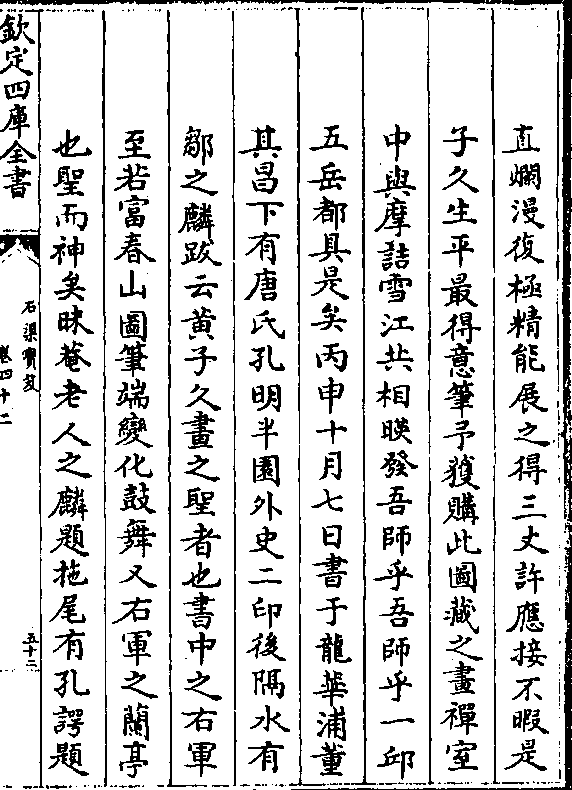 直爛漫復極精能展之得三丈許應接不暇是
子久生平最得意筆予獲購此圖藏之畫禪室
中與摩詰雪江共相暎發吾師乎吾師乎一邱
五岳都具是矣丙申十月七日書于龍華浦董
其昌下有唐氏孔明半園外史二印後隔水有
鄒之麟跋云黄子久畫之聖者也書中之右軍
至若富春山圖筆端變化鼓舞又右軍之蘭亭
也聖而神矣昧菴老人之麟題拖尾有孔諤題
欽定四庫全書
石渠寶笈
卷四十二
五十二